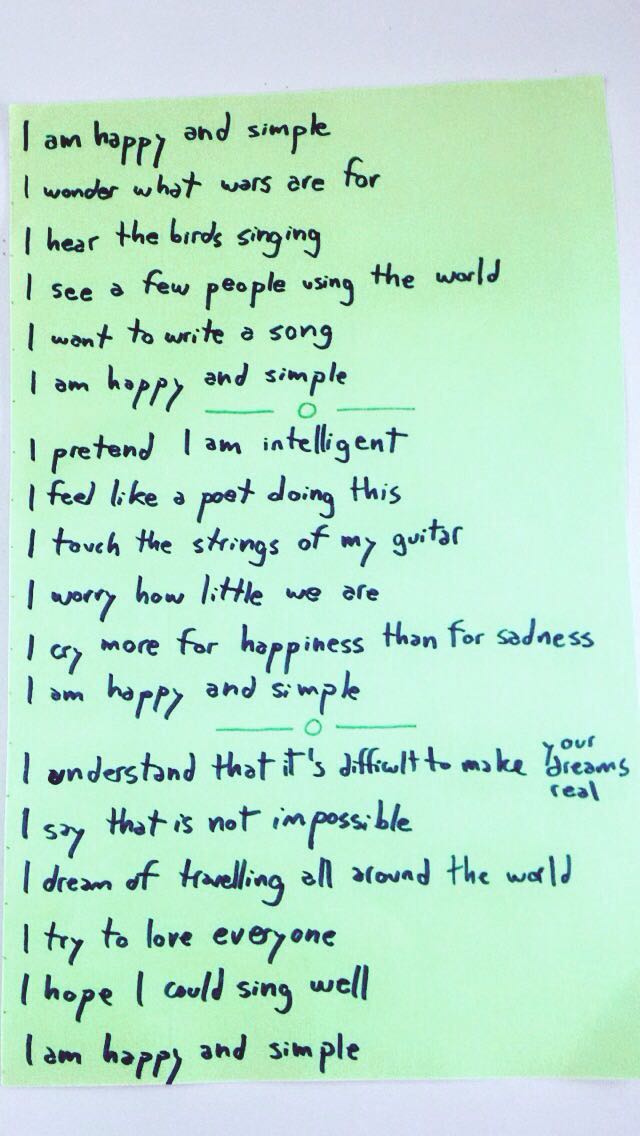 I am happy and simple
I wonder what wars are for
I hear the birds singing
I see a few people using the world
I want to write a song
I am happy and simple
I pretend I am intelligent
I feel like a poet doing this
I touch the strings of my guitar
I worry how little we are
I cry more for happiness than for sadness
I am happy and simple
I understand that it's difficult to make your dreams real
I say that is not impossible
I dream of travelling all around the world
I try to love everyone
I hope I could sing well
I am happy and simple